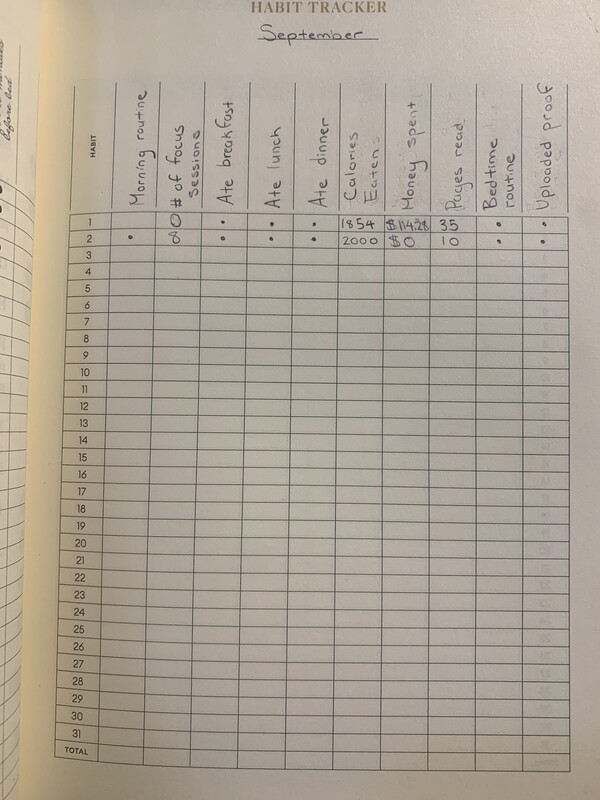 HABIT TRACKER
September
HABIT
Morning routine
# of focus
sessions
Ate breakfast
Ate lunch
Ate dinner
Calories
Eaten
Money spent
Pages read
Bedtime
routine
Uploaded proof
1 0 • • • 1854 $114.28 35 • •
2 • 8 • • • 2000 $0 10 • •
3
4
5
6
7
8
9
10
11
12
13
14
15
16
17
18
19
20
21
22
23
24
25
26
27
28
29
30
31
TOTAL
before bed